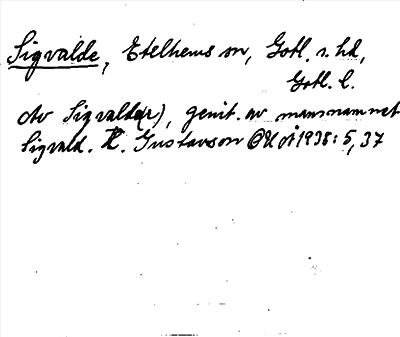 Sigvalde, Etelhems sn, Gotl. s. hd,
Gotl. l.
Av Sigvalda(r), genit. av mansnamnet
Sigvald. H. Gustavson 1938: 5, 37